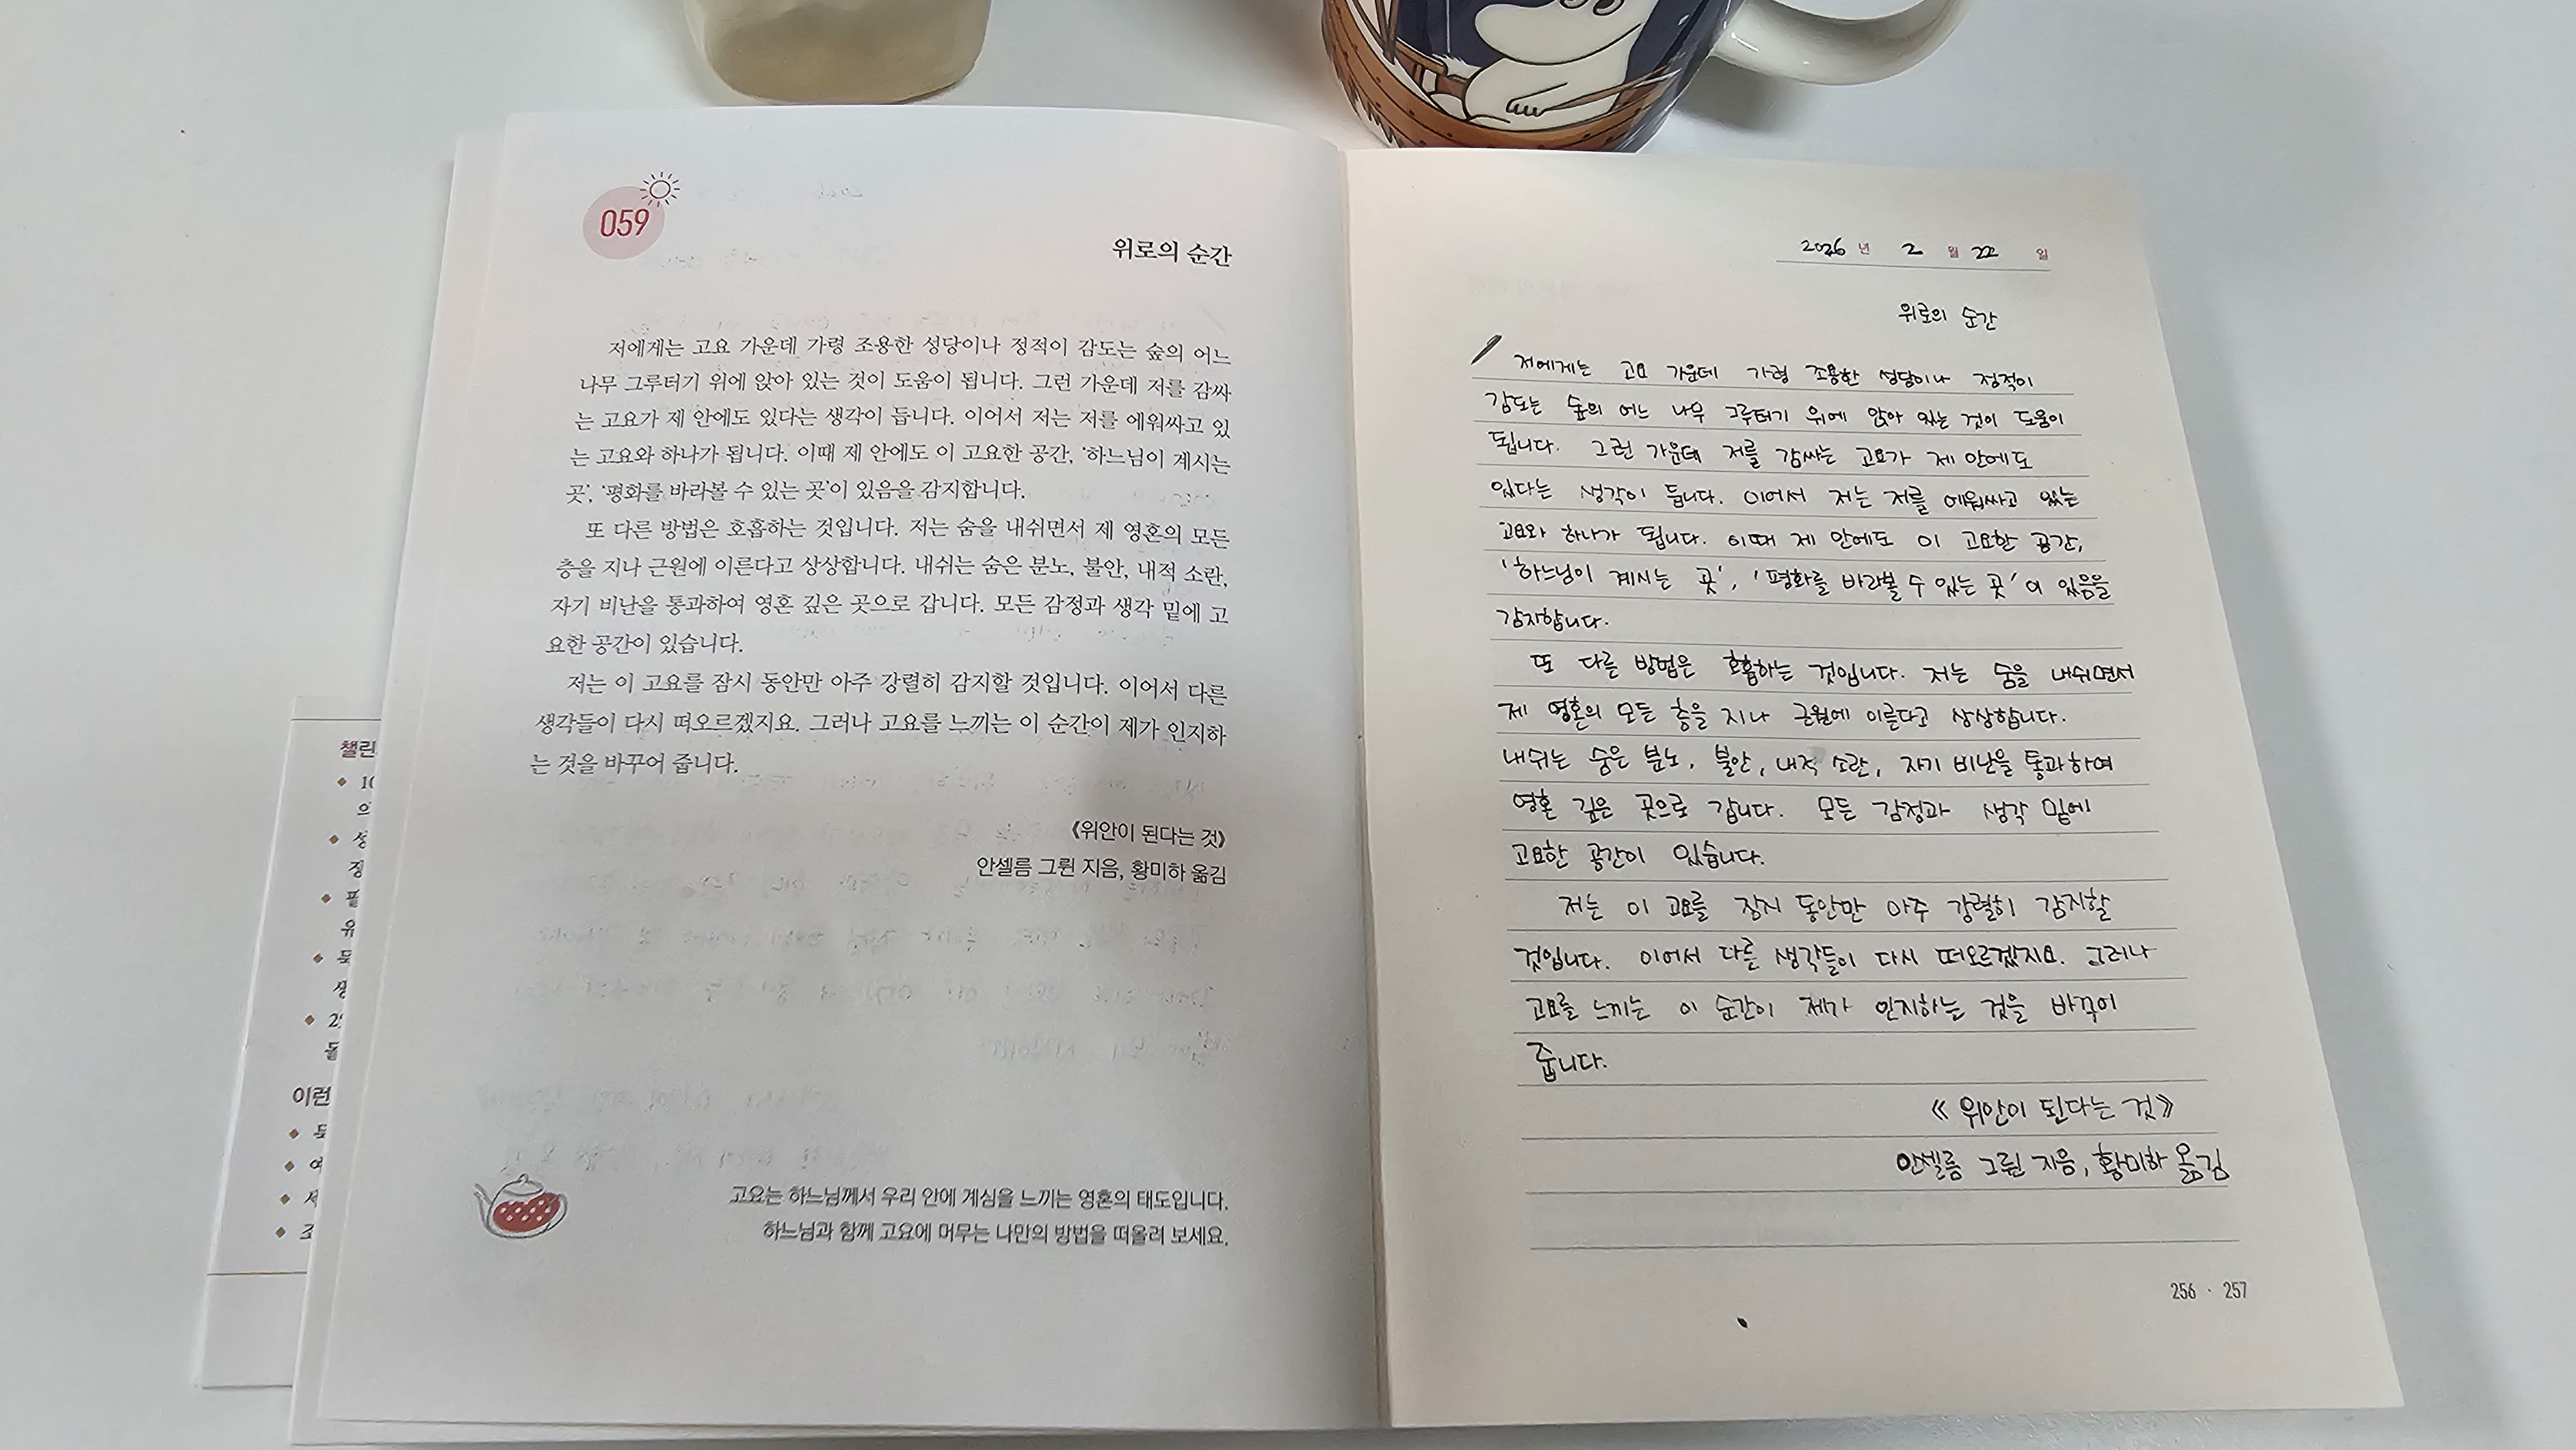 059
위로의 순간
저에게는 고요 가운데 가령 조용한 성당이나 정적이 감도는 숲의 어느
나무 그루터기 위에 앉아 있는 것이 도움이 됩니다. 그런 가운데 저를 감싸
는 고요가 제 안에도 있다는 생각이 듭니다. 이어서 저는 저를 에워싸고 있
는 고요와 하나가 됩니다. 이때 제 안에도 이 고요한 공간, ‘하느님이 계시는
곳’, ‘평화를 바라볼 수 있는 곳’이 있음을 감지합니다.
또 다른 방법은 호흡하는 것입니다. 저는 숨을 내쉬면서 제 영혼의 모든
층을 지나 근원에 이른다고 상상합니다. 내쉬는 숨은 분노, 불안, 내적 소란,
자기 비난을 통과하여 영혼 깊은 곳으로 갑니다. 모든 감정과 생각 밑에 고
요한 공간이 있습니다.
저는 이 고요를 잠시 동안만 아주 강렬히 감지할 것입니다. 이어서 다른
생각들이 다시 떠오르겠지요. 그러나 고요를 느끼는 이 순간이 제가 인지하
는 것을 바꾸어 줍니다.
《위안이 된다는 것》
안셀름 그륀 지음, 황미하 옮김
고요는 하느님께서 우리 안에 계심을 느끼는 영혼의 태도입니다.
하느님과 함께 고요에 머무는 나만의 방법을 떠올려 보세요.
챌린
10
의
이런
2026 년 2 월 22 일
위로의 순간
저에게는 고요 가운데 가령 조용한 성당이나 정적이
감도는 숲의 어느 나무 그루터기 위에 앉아 있는 것이 도움이
됩니다. 그런 가운데 저를 감싸는 고요가 제 안에도
있다는 생각이 듭니다. 이어서 저는 저를 에워싸고 있는
고요와 하나가 됩니다. 이때 제 안에도 이 고요한 공간,
‘하느님이 계시는 곳’, ‘평화를 바라볼 수 있는 곳’이 있음을
감지합니다.
또 다른 방법은 호흡하는 것입니다. 저는 숨을 내쉬면서
제 영혼의 모든 층을 지나 근원에 이른다고 상상합니다.
내쉬는 숨은 분노, 불안, 내적 소란, 자기 비난을 통과하여
영혼 깊은 곳으로 갑니다. 모든 감정과 생각 밑에
고요한 공간이 있습니다.
저는 이 고요를 잠시 동안만 아주 강렬히 감지할
것입니다. 이어서 다른 생각들이 다시 떠오르겠지요. 그러나
고요를 느끼는 이 순간이 제가 인지하는 것을 바꾸어
줍니다.
《위안이 된다는 것》
안셀름 그륀 지음, 황미하 옮김
256 · 257